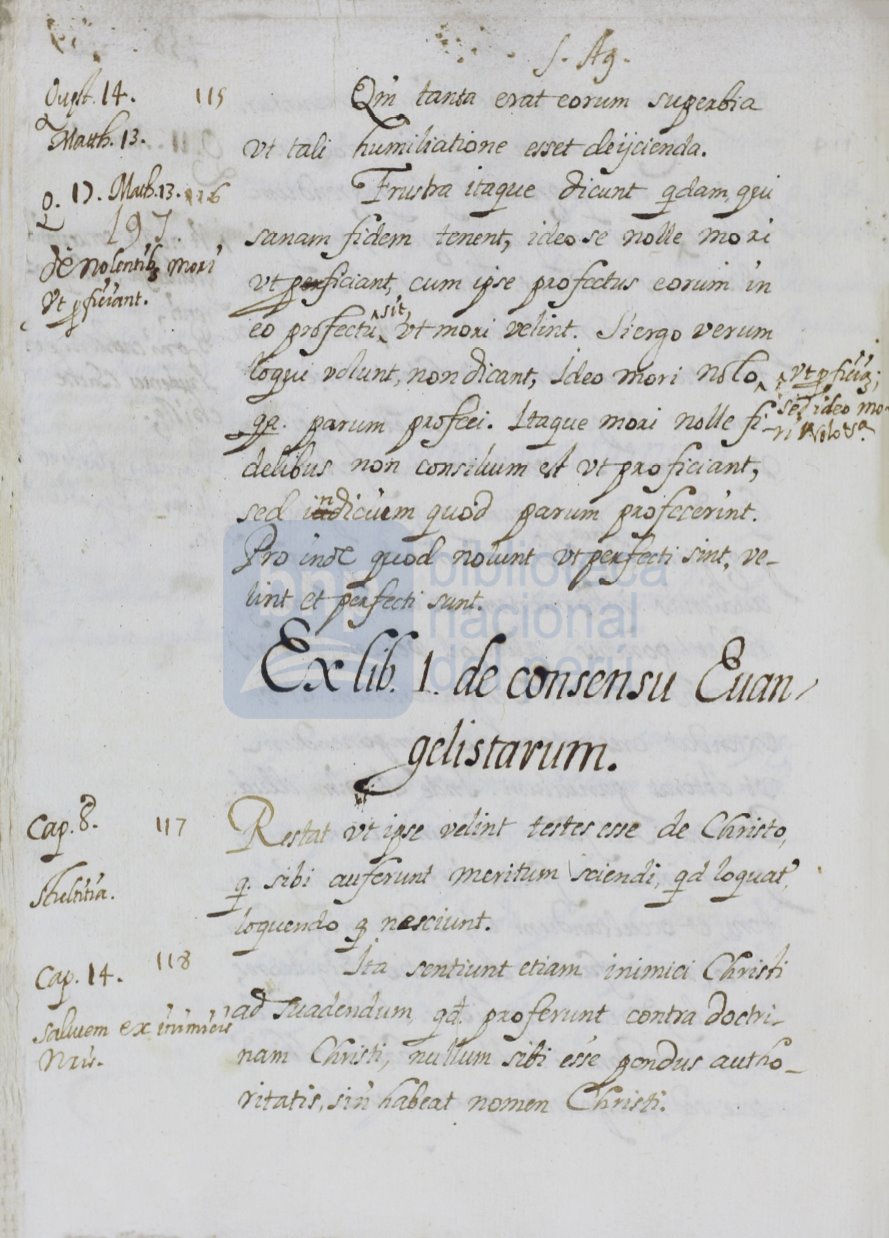 S. Ag.
Quęst. 14. 115 Qm tanta erat eorum superbia
Matth. 13.
vt tali humiliatione esset deijcienda.
Q. 17. Math. 13. 116 Frustra itaque dicunt qdam, qui
197.
sanam fidem tenent, ideo se nolle mori
de nolentibꝫ mori
vt perficiant, cum ipse profectus eorum in
vt pficiant.
eo profectu sit, vt mori velint. Si ergo verum
loqui volunt, non dicant, Ideo mori nolo, vt pficiā;
sed ideo mo-
ri nolo
qa. parum profeci. Itaque mori nolle fi-
delibus non consilium est vt proficiant,
sed indicium quod parum profecerint.
Pro inde quod nolunt vt perfecti sint, ve-
lint et perfecti sunt.
biblioteca
nacional
del perú
Ex lib. 1. de consensu Euan-
gelistarum.
Cap. 8. 117 Restat vt ipse velint testes esse de Christo,
Stultitia.
q. sibi auferunt meritum sciendi, qd loquat,
loquendo q nesciunt.
Cap. 14. 118 Ita sentiunt etiam inimici Christi
salutem ex inimicis
nris.
ad suadendum, qd. proferunt contra doctri-
nam Christi, nullum sibi esse pondus autho-
ritatis, sin habeat nomen Christi.